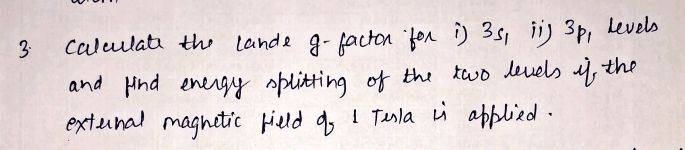 3. Calculate the lande g-factor for i) 3s₁ ii) 3p₁ levels
and find energy splitting of the two levels if the
external magnetic field of 1 Tesla is applied.